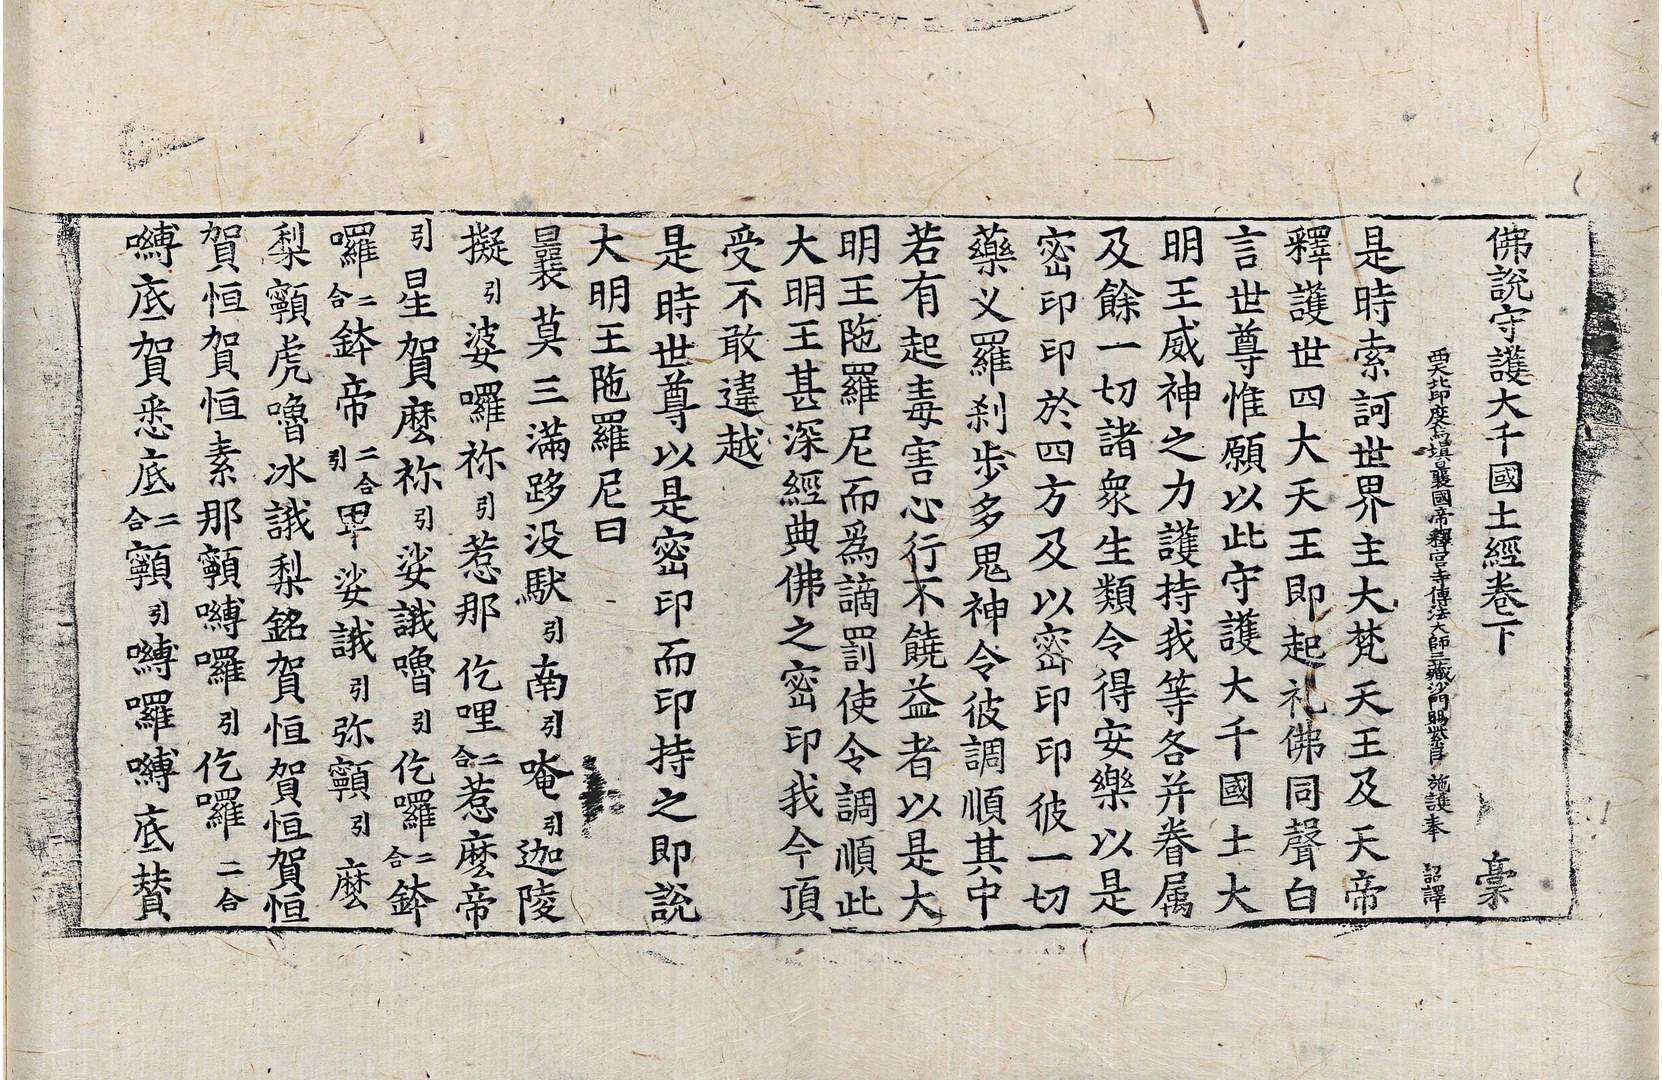 佛說守護大千國土經卷下 槀
西天北印度烏塡曩國帝釋宮寺傳法大師三藏沙門賜紫臣 施護奉 詔譯
是時索訶世界主大梵天王及天帝
釋護世四大天王即起礼佛同聲白
言世尊惟願以此守護大千國土大
明王威神之力護持我等各并眷属
及餘一切諸衆生類令得安樂以是
密印印於四方及以密印印彼一切
藥义羅刹步多鬼神令彼調順其中
若有起毒害心行不饒益者以是大
明王陁羅尼而爲謫罰使令調順此
大明王甚深經典佛之密印我今頂
受不敢違越
是時世尊以是密印而印持之即說
大明王陁羅尼曰
曩莫三滿跢没馱引南引唵引迦陵
擬引婆囉祢引惹那仡哩二合惹麼帝
引星賀麽祢引娑誐嚕引仡囉二合鉢
囉二合鉢帝二合引畢娑誐引弥嚀引麽
梨嚀虎嚕冰誐梨銘賀恒賀恒賀恒
賀恒賀恒素那嚀嚩囉引仡囉二合
嚩底賀悉底二合嚀引嚩囉嚩底賛